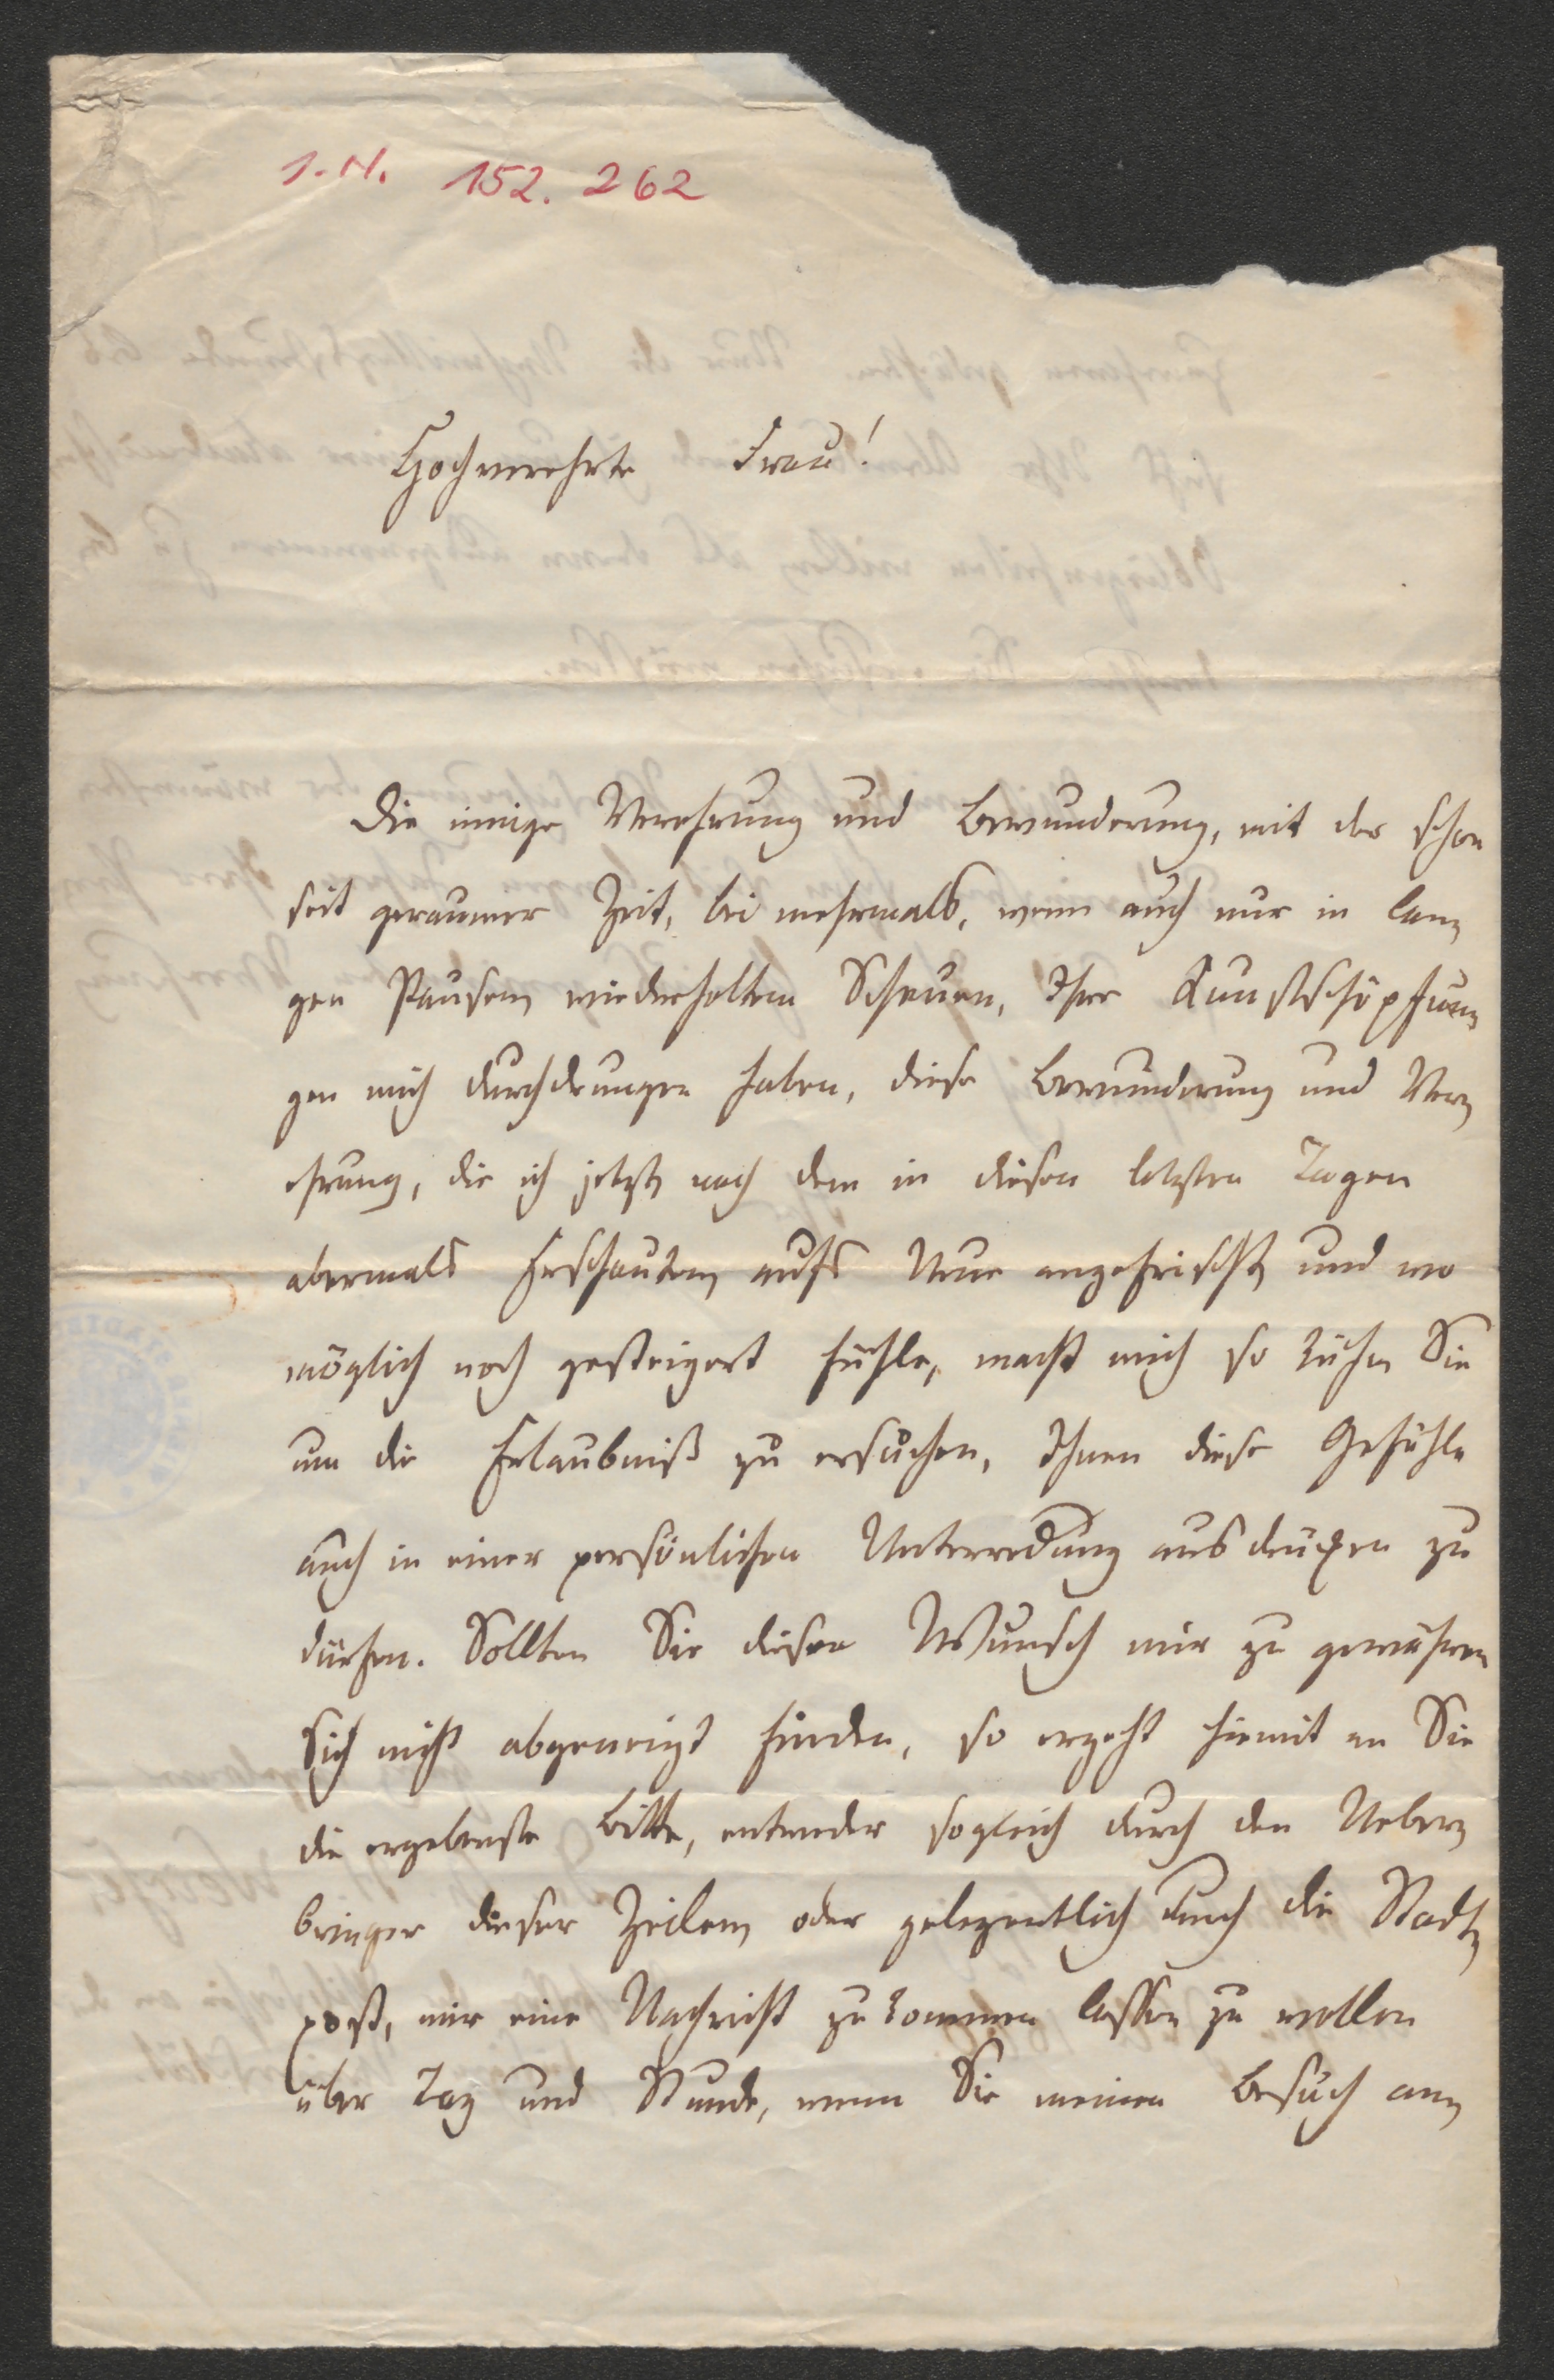 I.N. 152.262
Hochverehrte Frau!
Die innige Verehrung und Bewunderung, mit der schon
seit geraumer Zeit, bei mehrmals, wenn auch nur in lan-
gen Pausen wiederholtem Schauen, Ihre Kunstschöpfun-
gen mich durchdrungen haben, diese Bewunderung und Ver-
ehrung, die ich jetzt nach dem in diesen letzten Tagen
abermals Erschauten aufs Neue angefrischt und wo
möglich noch gesteigert fühle, macht mich so kühn Sie
um die Erlaubniß zu ersuchen, Ihnen diese Gefühle
auch in einer persönlichen Unterredung ausdrücken zu
dürfen. Sollten Sie diesen Wunsch mir zu gewähren
Sich nicht abgeneigt finden, so ergeht hiemit an Sie
die ergebenste Bitte, entweder sogleich durch den Ueber-
bringer dieser Zeilen oder gelegentlich durch die Stadt-
post, mir eine Nachricht zukommen lassen zu wollen
über Tag und Stunde, wenn Sie meinen Besuch an-